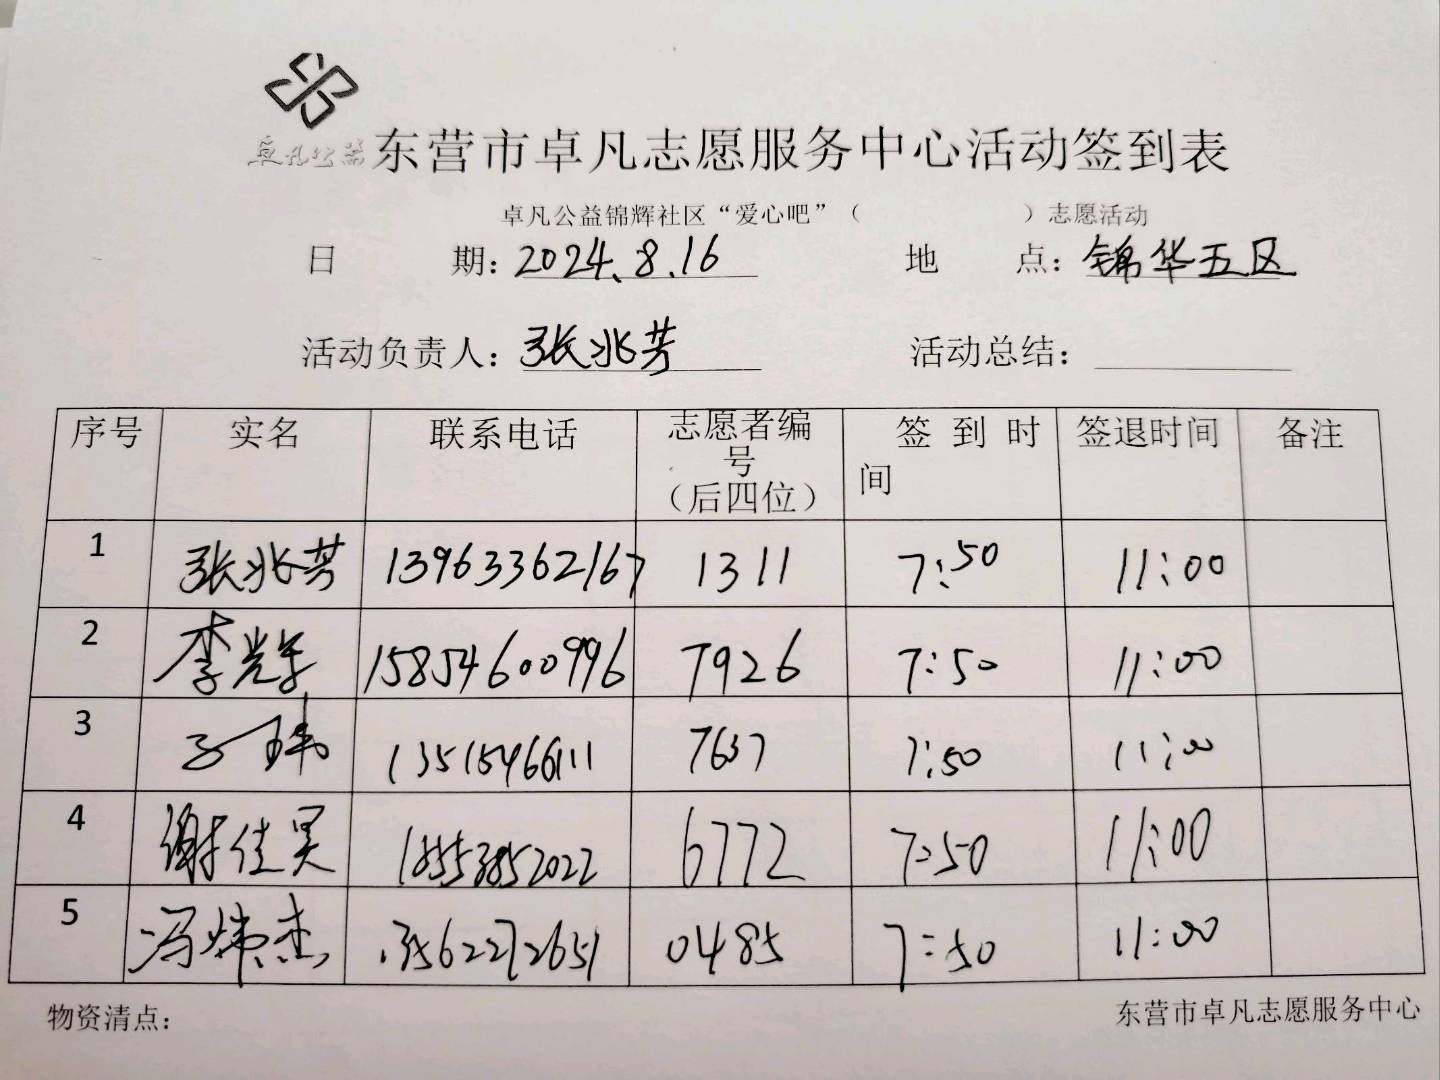 卓凡公益
东营市卓凡志愿服务中心活动签到表
卓凡公益锦辉社区“爱心吧”（ ）志愿活动
日 期：2024.8.16 地 点：锦华五区
活动负责人：张兆芳 活动总结：
序号 实名 联系电话 志愿者编号（后四位） 签到时间 签退时间 备注
1 张兆芳 13963362167 1311 7:50 11:00
2 李光 15854600996 7926 7:50 11:00
3 玮 13515466111 7637 7:50 11:00
4 谢佳昊 18553852022 6772 7:50 11:00
5 冯炜杰 0485 7:50 11:00
物资清点： 东营市卓凡志愿服务中心